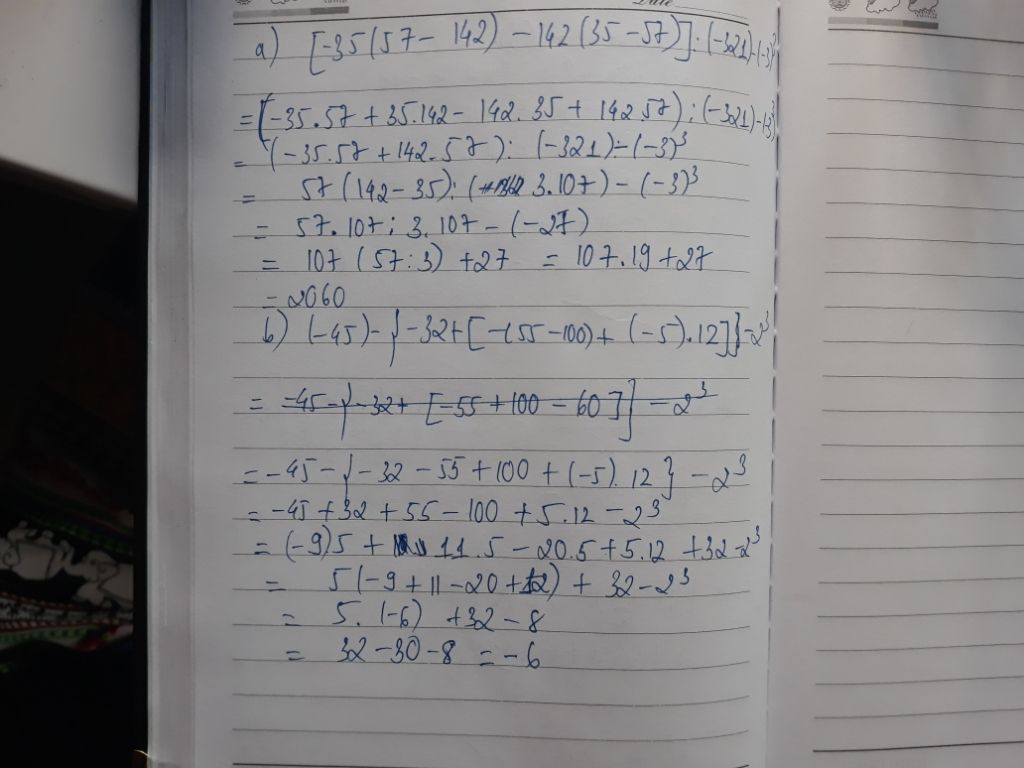 a) [-35(57- 142) - 142(35-57)] : (-321)-(-3)³
= (-35.57 + 35.142 - 142.35 + 142.57) : (-321)-(-3)³
= (-35.57 + 142.57) : (-321) - (-3)³
= 57(142-35) : ( 3.107) - (-3)³
= 57.107 : 3.107 - (-27)
= 107 (57:3) +27 = 107.19 +27
= 2060
b) (-45)- {-32+[-(55-100)+ (-5).12]}-2³
= -45-{-32+ [-55+100-60]} -2³
= -45 - {-32 - 55 +100 + (-5).12} -2³
= -45 +32 +55 -100 +5.12 -2³
= (-9)5 + 11.5 - 20.5 +5.12 +32-2³
= 5(-9 +11 -20+12) + 32-2³
= 5.(-6) +32 - 8
= 32 -30 -8 = -6